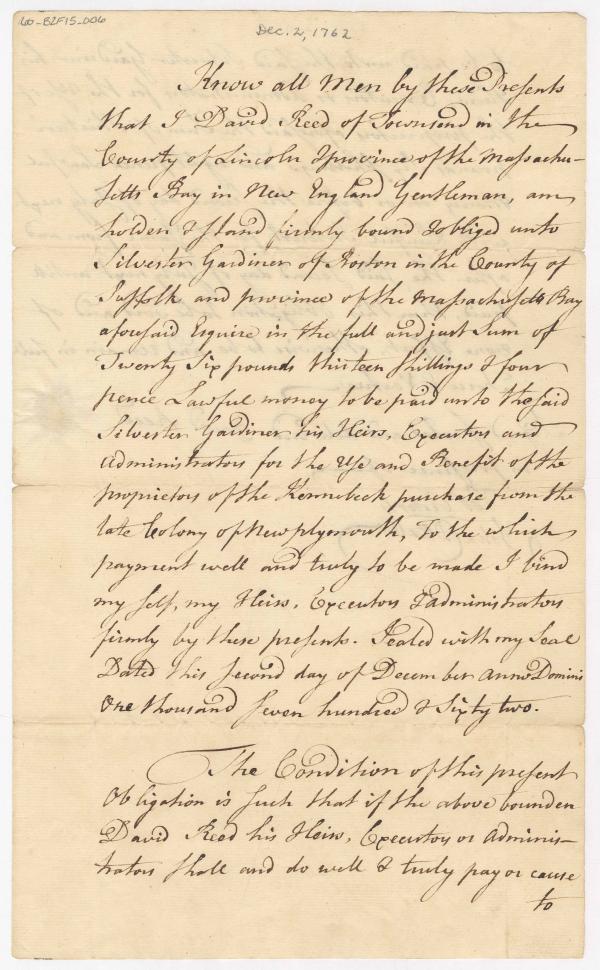 60-B2F15-006
Dec. 2, 1762
Know all Men by these Presents
that I David Reed of Townsend in the
County of Lincoln & province of the Massachu-
setts Bay in New England Gentleman, am
holden & stand firmly bound & obliged unto
Silvester Gardiner of Boston in the County of
Suffolk and province of the Massachusetts Bay
aforesaid Esquire in the full and just Sum of
Twenty Six pounds thirteen shillings & four
pence Lawful money to be paid unto the said
Silvester Gardiner his Heirs, Executors and
administrators for the Use and Benefit of the
proprietors of the Kennebeck purchase from the
late Colony of New plymouth, To the which
payment well and truly to be made I bind
my self, my Heirs, Executors & administrators
firmly by these presents. Sealed with my Seal
Dated this second day of December anno Domini
One thousand seven hundred & Sixty two.
The Condition of this present
Obligation is such that if the above bounden
David Reed his Heirs, Executors or Adminis-
trators shall and do well & truly pay or cause
to